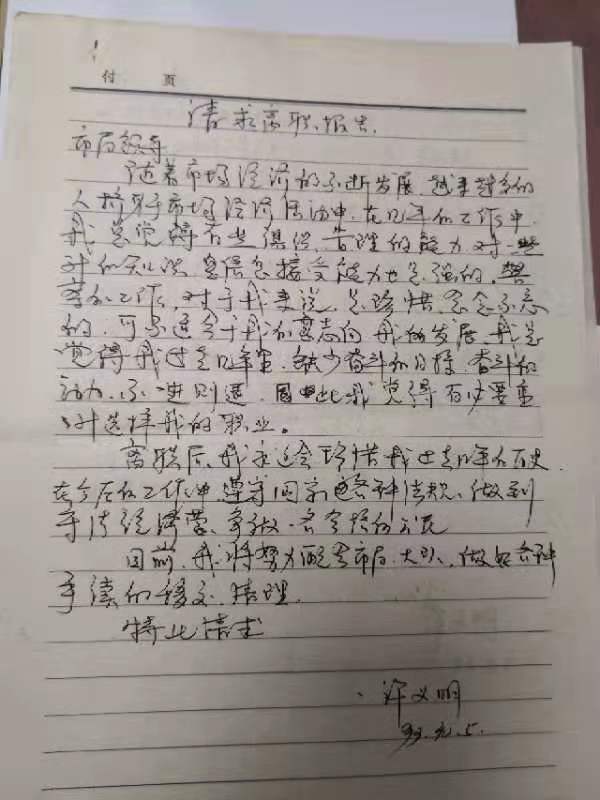 付 页
请求离职报告
市局领导
随着市场经济的不断发展，越来越多的
人将身于市场经济活动中，在几年的工作中，
我总觉得有些得保，管理的能力对一些
新的知识、是信息接受能力也是强的，警
察的工作，对于我来说，是珍惜、念念不忘
的，可不适合于我的意志向我的发展，我总
觉得我过去几年里，缺少奋斗的目标，奋斗的
动力，不进则退，因此我觉得有必要重
新选择我的职业。
离职后，我永远会珍惜我过去几年的历史，
在今后的工作中，遵守国家的各种法规、做到
守法经济营、争做一名合格的公民
目前，我将努力配合市局、大队、做好各种
手续的移交，清理。
特此请求
许义明
99.九.5.